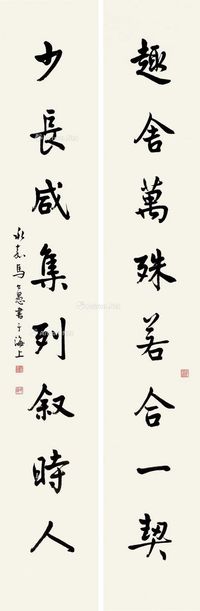 趣舍萬殊若合一契
少長咸集列叙時人
永嘉馬公愚書于海上